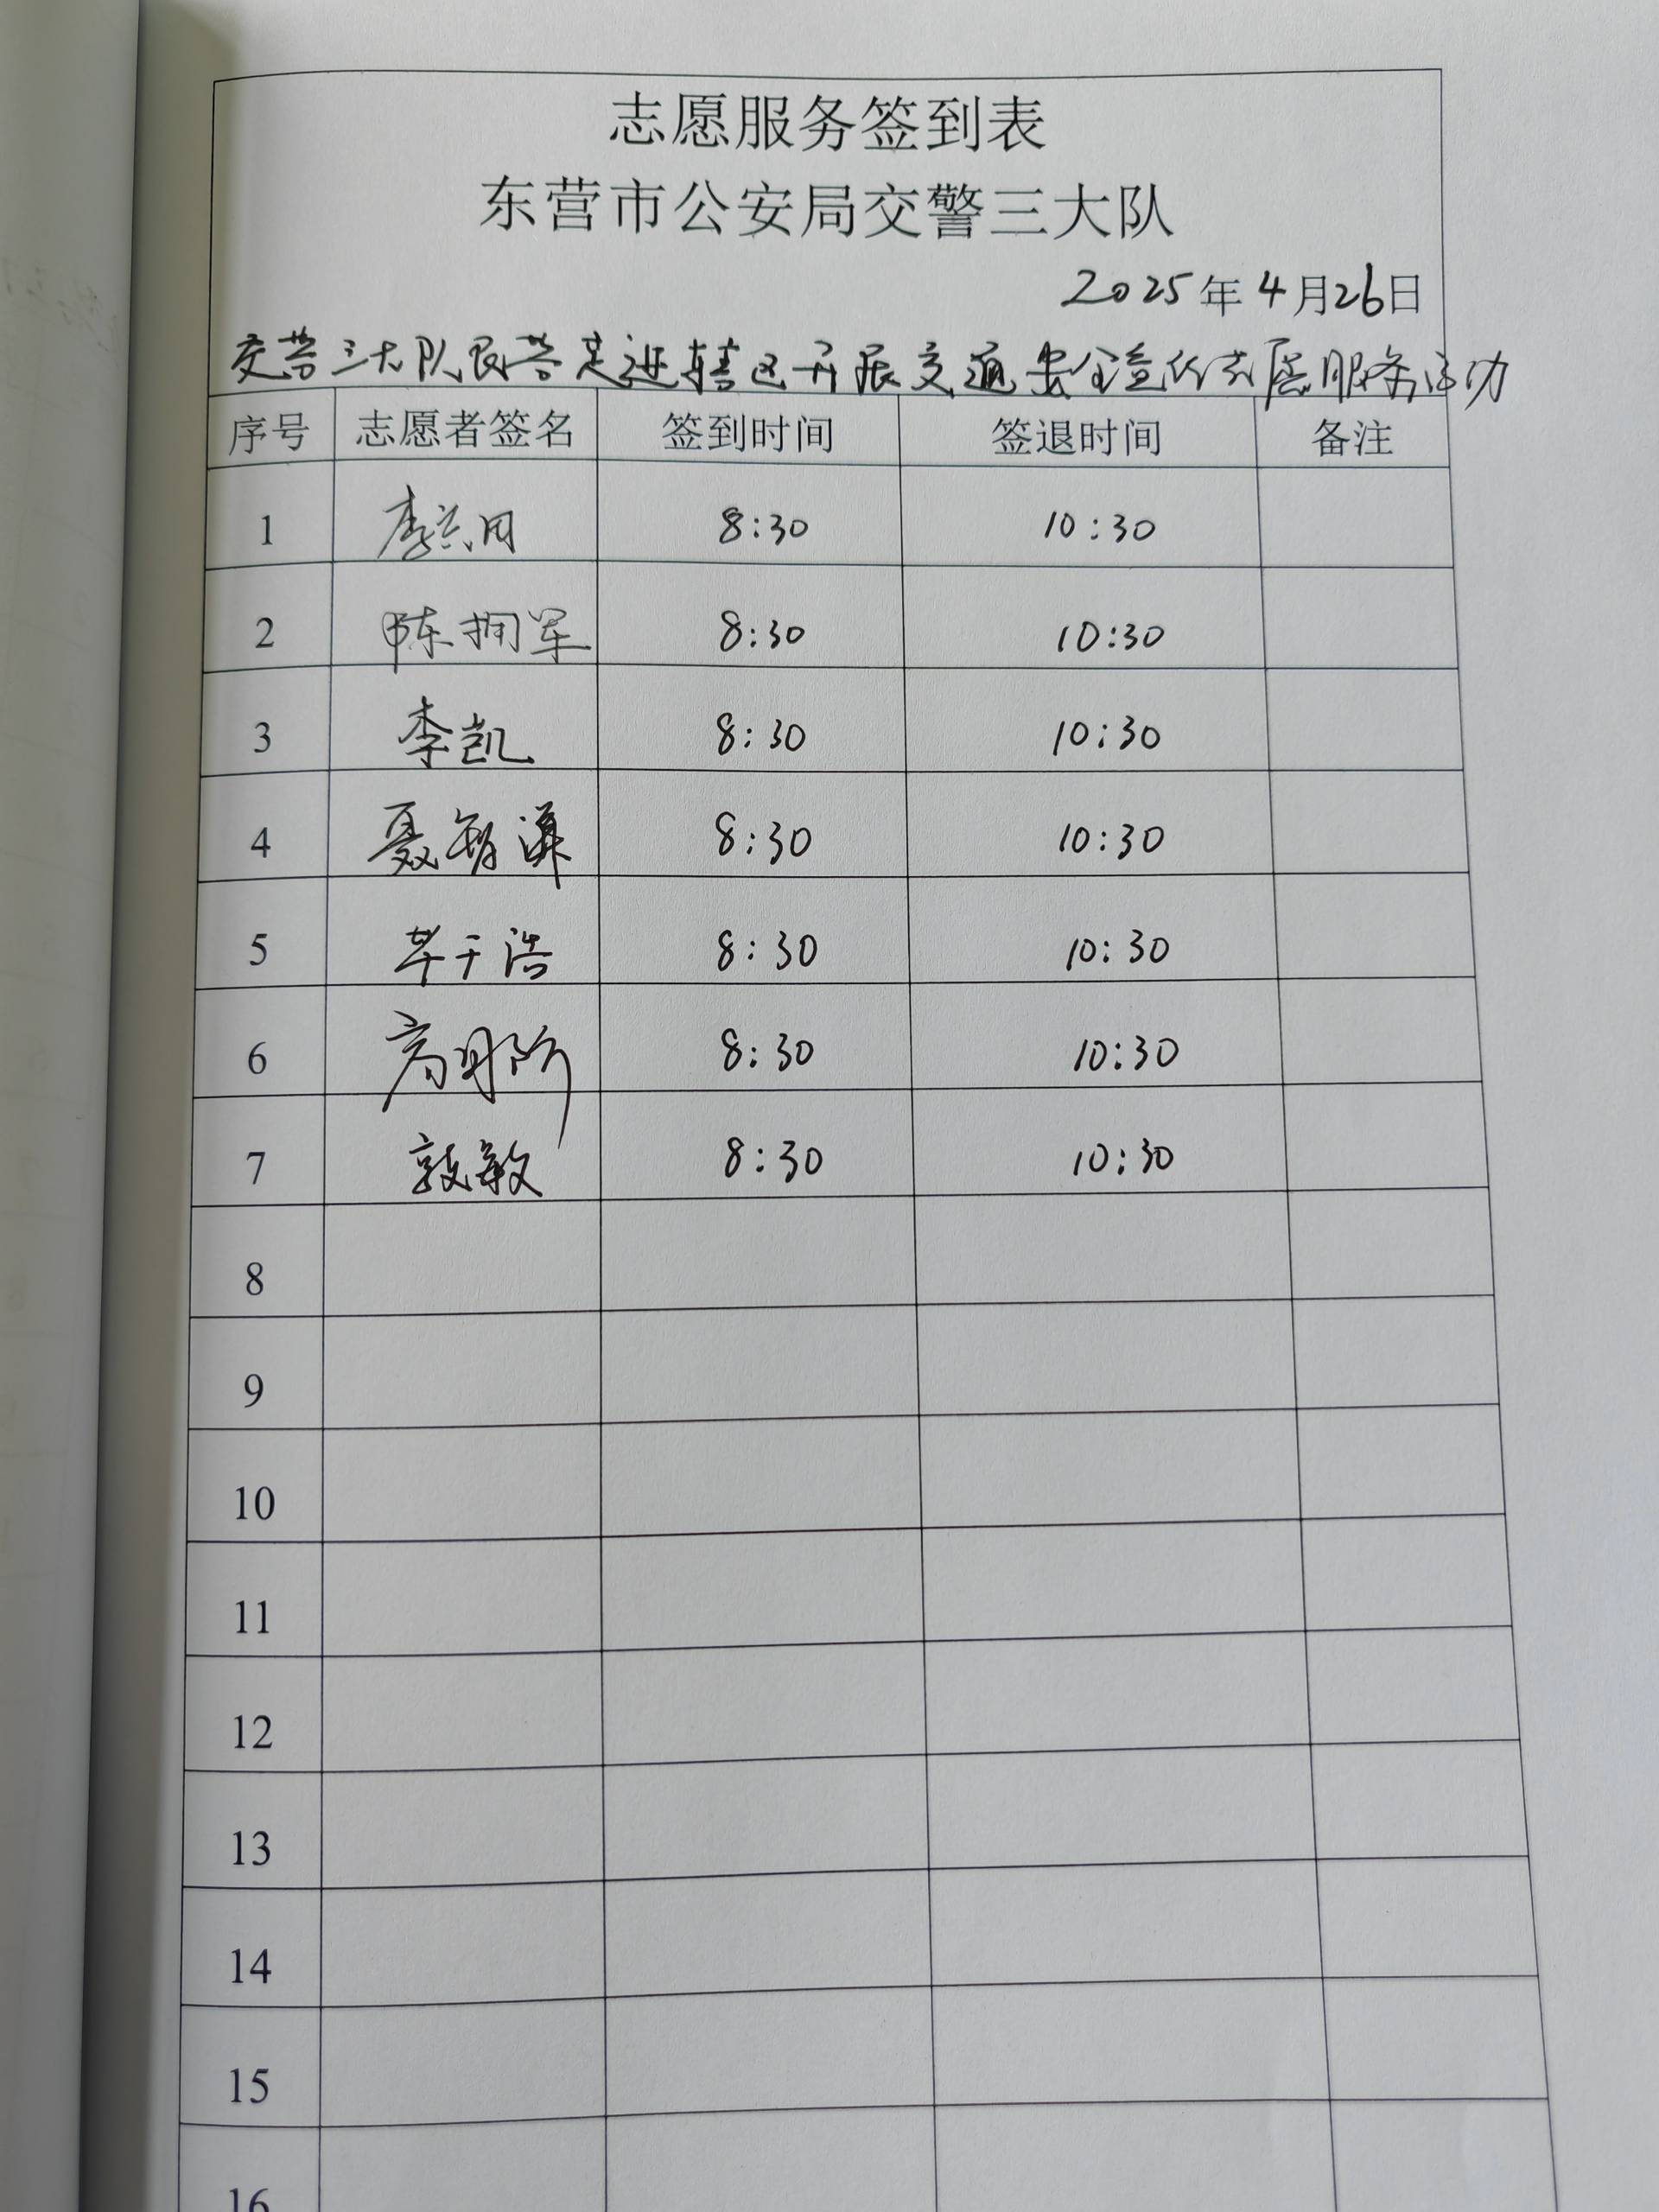 志愿服务签到表
东营市公安局交警三大队
2025年4月26日
交警三大队民警走进辖区开展交通安全宣传志愿服务活动
序号 志愿者签名 签到时间 签退时间 备注
1 8:30 10:30
2 陈拥军 8:30 10:30
3 李凯 8:30 10:30
4 聂 8:30 10:30
5 浩 8:30 10:30
6 8:30 10:30
7 郭敏 8:30 10:30
8
9
10
11
12
13
14
15
16